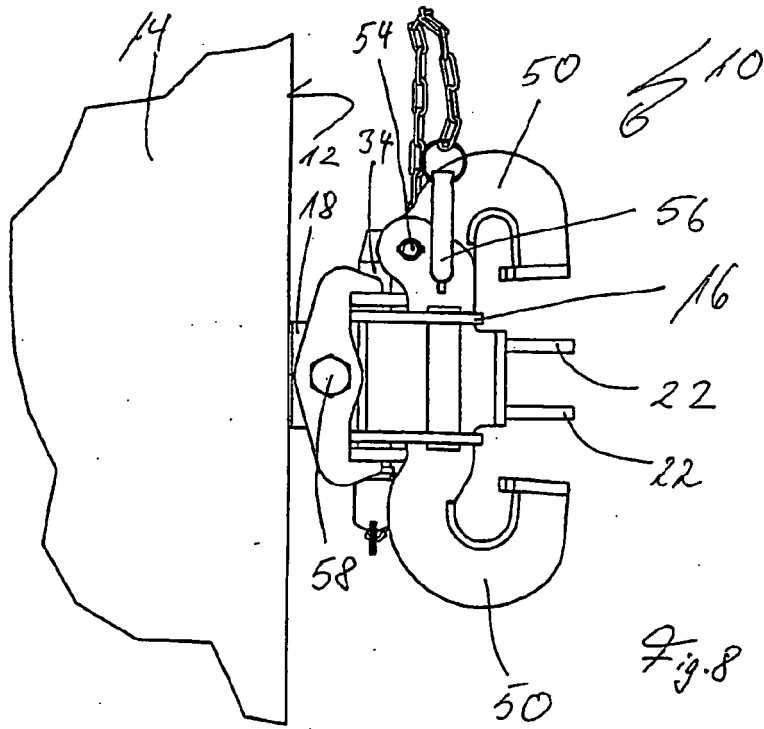 14
54
50
10
12
34
18
56
16
22
22
58
50
Fig. 8